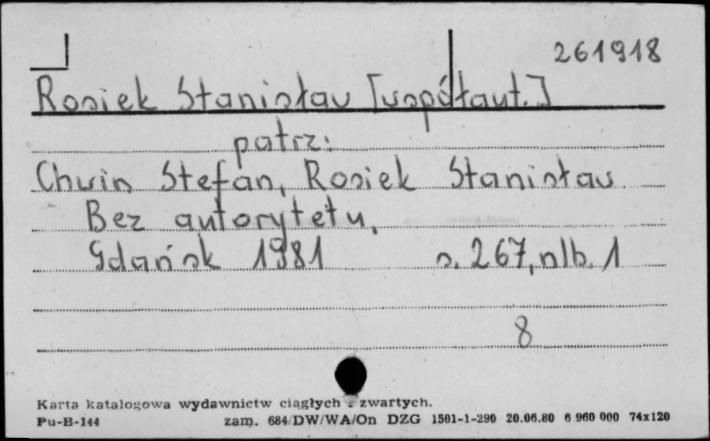 261918
Rosiek Stanisław [współaut.]
patrz:
Chwin Stefan, Rosiek Stanisław
Bez autorytetu.
Gdańsk 1981 s. 267, nlb. 1
8
Karta katalogowa wydawnictw ciągłych i zwartych.
Pu-B-144 zam. 684/DW/WA/On DZG 1501-1-290 20.06.80 6 960 000 74x120